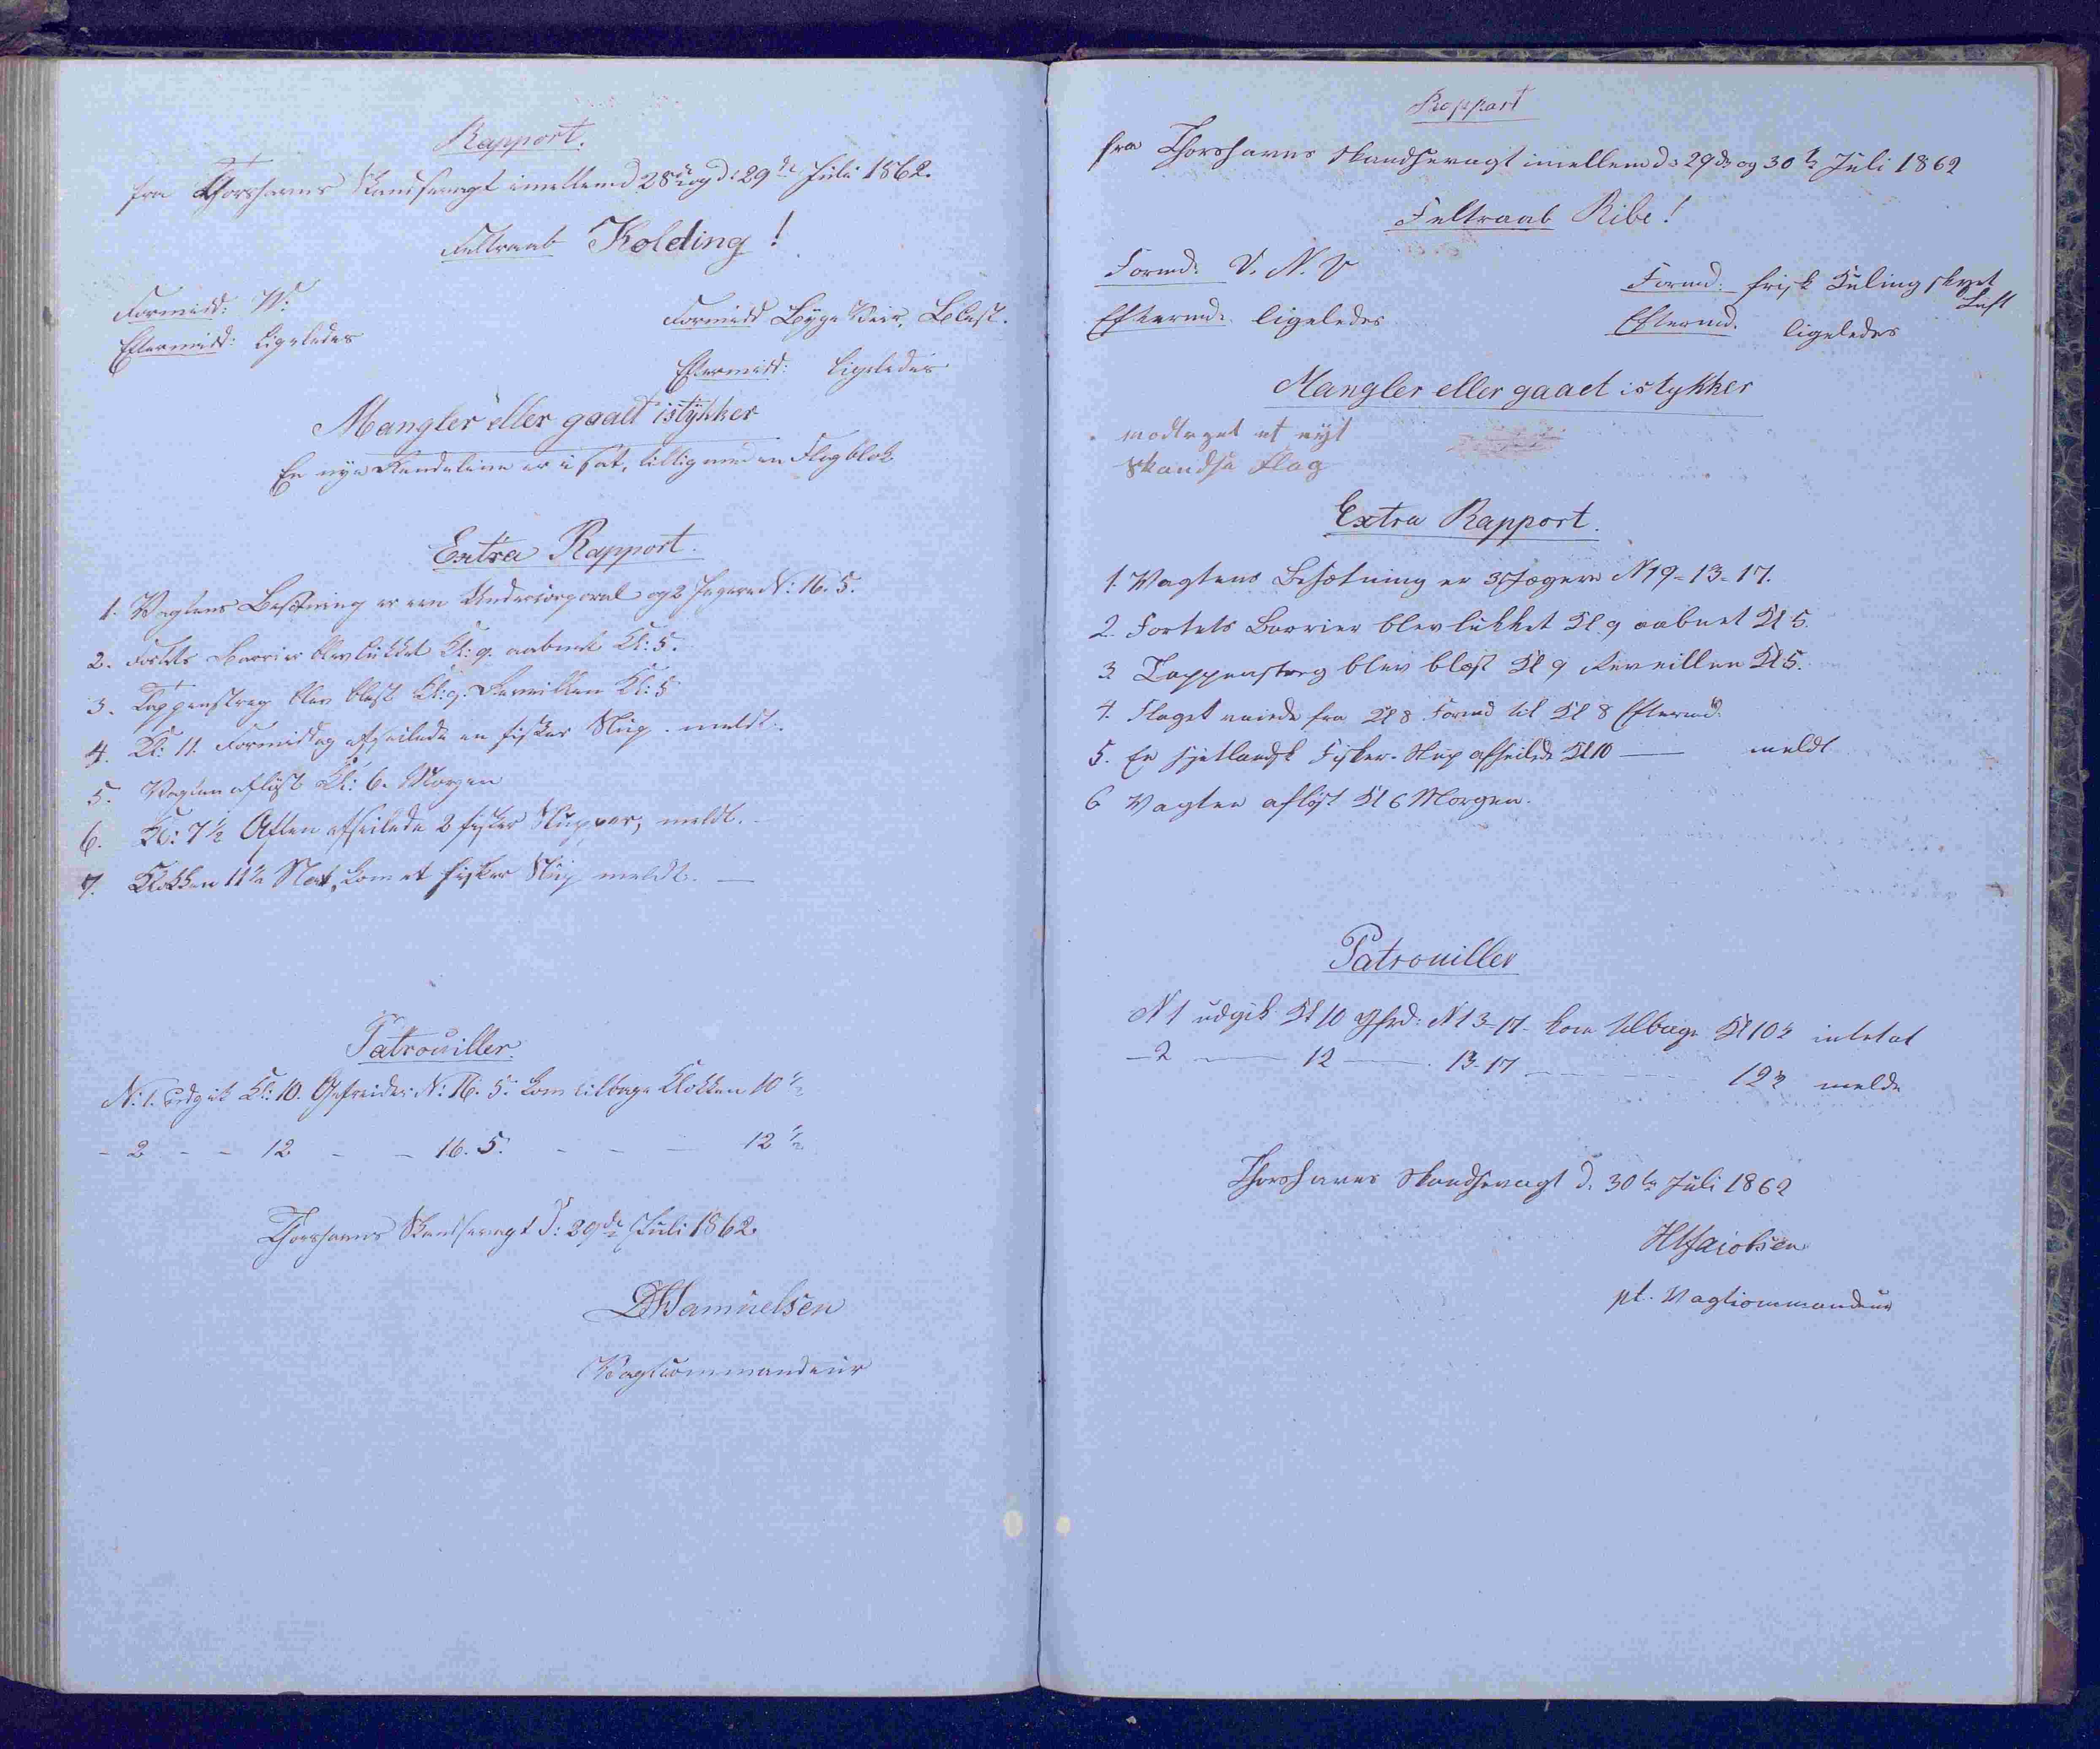 Rapport.
fra Thorshavns Skandsevagt imellem d 28de og d: 29de Juli 1862.
Feltraab Kolding!
Formidd: V.
Eftermidd: ligeledes
Formidd Byge Veir, Blæst.
Eftermidd: ligeledes
Mangler eller gaaet istykker
En nye Rendeline er i sat, tilligemed en Flagblok
Extra Rapport.
1. Vagtens Besætning er een Undercorporal og 2 Jægere N: 16. 5.
2. Fortets Barrier blev lukket Kl: 9. aabnet Kl: 5.
3. Tappenstreg blev blæst Kl: 9. Reveillen Kl: 5
4. Kl: 11. Formiddag afseilede en fisker Slup. meldt.
5. Vagten afløst Kl: 6. Morgen
6. Kl: 7½ Aften afseilede 2 fisker Slupper, meldt.
7. Klokken 11½ Nat, kom et fisker Slup meldt. —
Patrouiller.
N: 1. udgik Kl: 10. Gefreider N: 16. 5. kom tilbage Klokken 10½
- 2 - - 12 - - 16. 5. - - - 12½
Thorshavns Skandsevagt d: 29de Juli 1862.
DHSamuelsen
Vagtcommandeur
Rapport
fra Thorshavns Skandsevagt imellem d: 29de og 30te Juli 1862
Feltraab Ribe!
Formd: V. N. V
Eftermd: ligeledes
Formd: frisk Kuling skyet
Luft
Eftermd. ligeledes
Mangler eller gaaet istykker
modtaget et nyt
Skandse Flag
Extra Rapport.
1. Vagtens Besætning er 3 Jægere N 19-13-17.
2. Fortets Barrier blev lukket Kl 9 aabnet Kl 5.
3. Tappenstreg blev blæst Kl 9 Reveillen Kl 5.
4. Flaget veiede fra Kl 8 Formd til Kl 8 Eftermd.
5. En hjetlandsk Fisker-Slup afseilede Kl 10 — meldt
6 Vagten afløst Kl 6 Morgen.
Patrouiller
N 1 udgik Kl 10 Gfrd: N 13-17- kom tilbage Kl 10½ intetat
- 2 — 12 — 13-17 - - - 12½ melde
Thorshavns Skandsevagt d. 30te Juli 1862
Jacobsen
pt. Vagtcommandeur